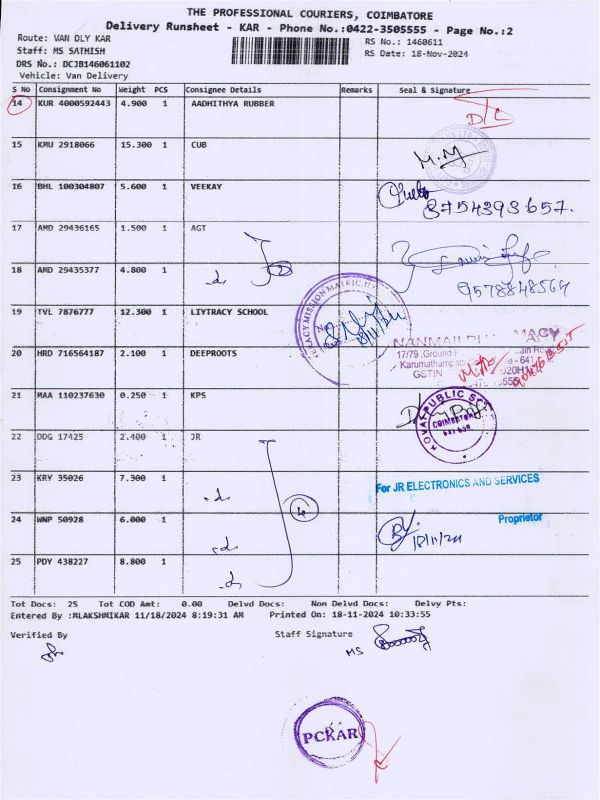 THE PROFESSIONAL COURIERS, COIMBATORE
Delivery Runsheet - KAR - Phone No.:0422-3505555 - Page No.:2
Route: VAN DLY KAR
RS No.: 1460611
Staff: MS SATHISH
RS Date: 18-Nov-2024
DRS No.: DCJB146061102
Vehicle: Van Delivery
S No Consignment No Weight PCS Consignee Details Remarks Seal & Signature
14 KUR 4000592443 4.900 1 AADHITHYA RUBBER
15 KMU 2918066 15.300 1 CUB
M.M
16 BHL 100304807 5.600 1 VEEKAY
8754393657.
17 AMD 29436165 1.500 1 AGT
18 AMD 29435377 4.800 1
9578848564
19 TYL 7876777 12.300 1 LIYTRACY SCHOOL
20 HRD 716564187 2.100 1 DEEPROOTS
17/79,Ground
GSTIN
21 MAA 110237630 0.250 1 KPS
PUBLIC
COIMBATORE
22 DDG 17425 2.400 1 JR
23 KRY 35026 7.300 1
For JR ELECTRONICS AND SERVICES
24 WNP 50928 6.000 1
Proprietor
18/11/24
25 PDY 438227 8.800 1
Tot Docs: 25 Tot COD Amt: 0.00 Delvd Docs: Non Delvd Docs: Delvy Pts:
Entered By :MLAKSHMIKAR 11/18/2024 8:19:31 AM Printed On: 18-11-2024 10:33:55
Verified By Staff Signature
MS
PCKAR